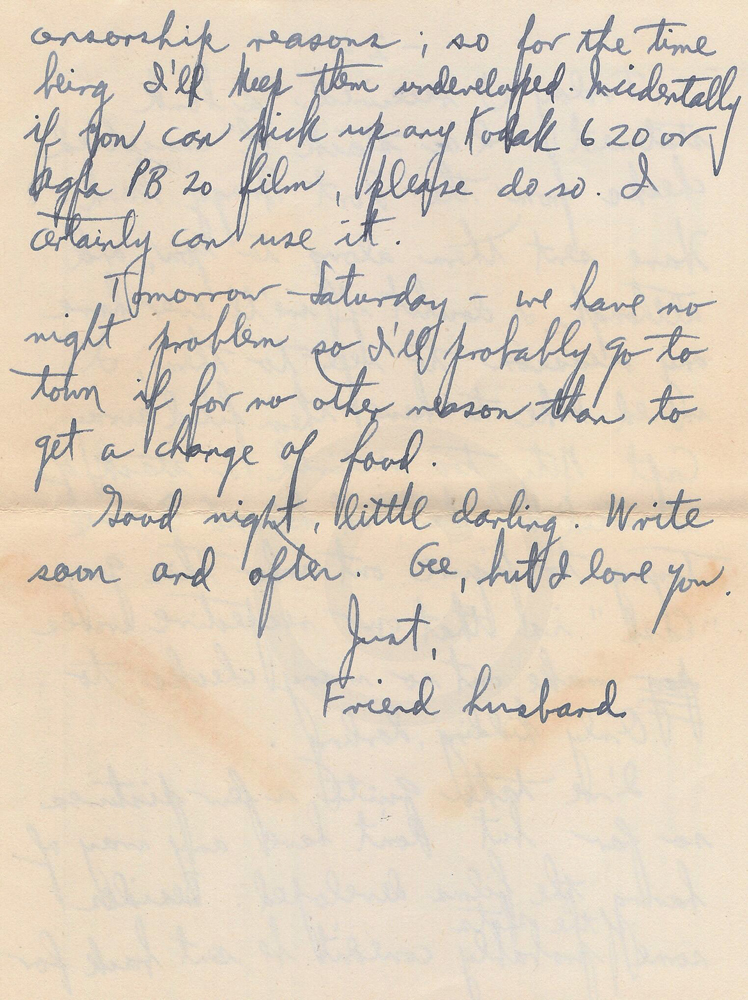 censorship reasons; so for the time
being I'll keep them undeveloped. Incidentally
if you can pick up any Kodak 620 or
Agfa PB 20 film, please do so. I
certainly can use it.
Tomorrow - Saturday - we have no
night problem so I'll probably go to
town if for no other reason than to
get a change of food.
Good night, little darling. Write
soon and often. Gee, but I love you.
Just,
Friend husband.